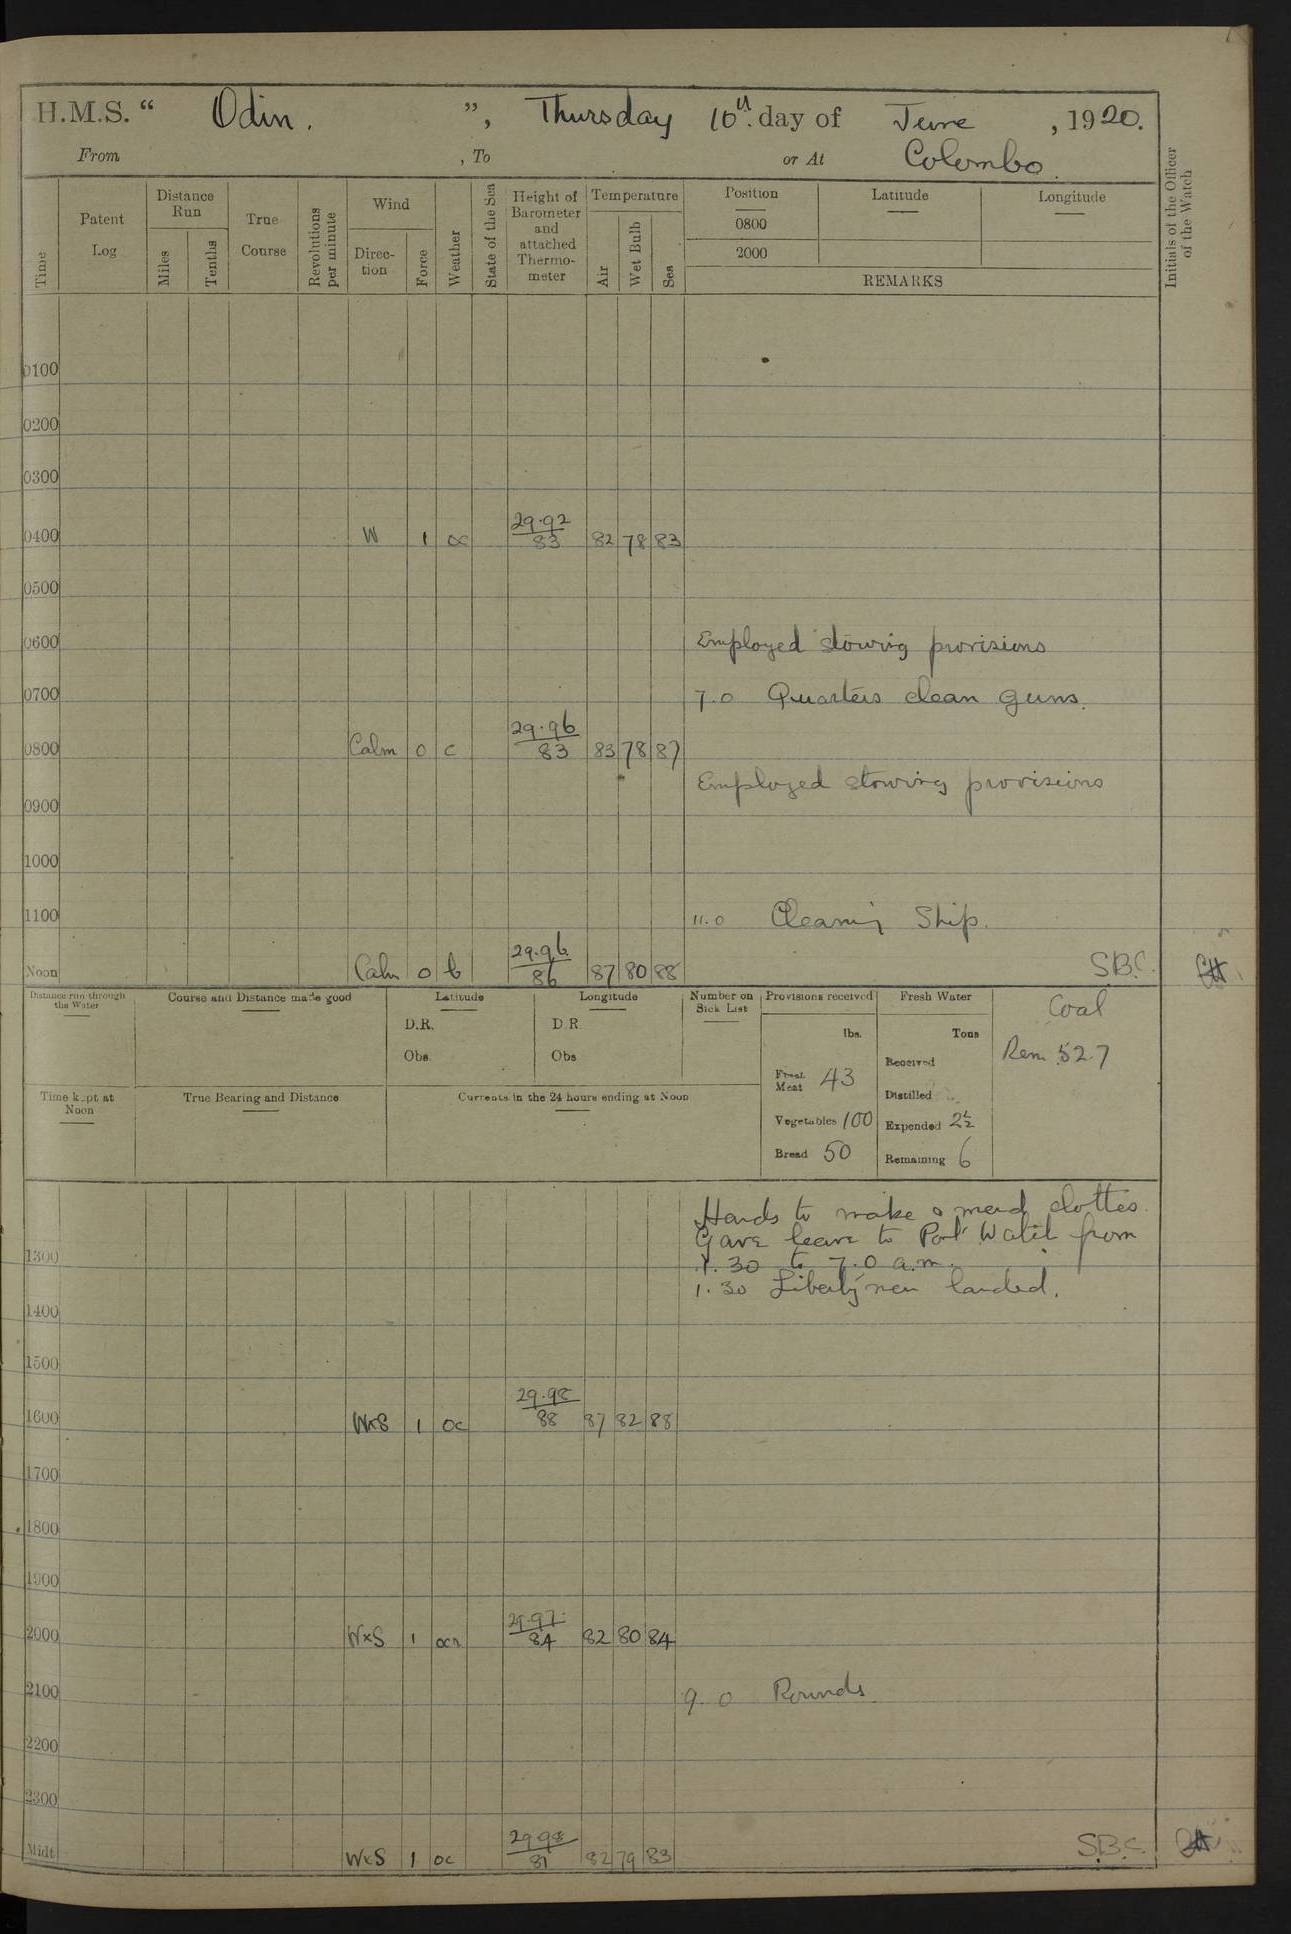 H.M.S. “ Odin. ”, Thursday 10th. day of June , 1920.
From , To or At Colombo.
Time
Patent Log
Distance Run
Miles
Tenths
True Course
Revolutions per minute
Wind
Direction
Force
Weather
State of the Sea
Height of Barometer and attached Thermometer
Temperature
Air
Wet Bulb
Sea
Position Latitude Longitude
0800
2000
REMARKS
Initials of the Officer of the Watch
0100
0200
0300
0400 W 1 oc 29.92 83 82 78 83
0500
0600 Employed stowing provisions
0700 7.0 Quarters clean guns.
0800 Calm 0 c 29.96 83 83 78 87
Employed stowing provisions
0900
1000
1100 11.0 Cleaning Ship.
Noon Calm 0 b 29.96 86 87 80 88 S.B.C.
Distance run through the Water
Course and Distance made good
Latitude
D.R.
Obs.
Longitude
D.R.
Obs
Number on Sick List
Provisions received
lbs.
Fresh Meat 43
Vegetables 100
Bread 50
Fresh Water
Tons
Received
Distilled
Expended 2½
Remaining 6
Coal
Rem. 527
Time kept at Noon
True Bearing and Distance
Currents in the 24 hours ending at Noon
Hands to make & mend clothes.
Gave leave to Port Watch from
1300 1.30 to 7.0 a.m.
1.30 Liberty men landed.
1400
1500
1600 WxS 1 oc 29.98 88 87 82 88
1700
1800
1900
2000 WxS 1 ocr 29.97 84 82 80 84
2100 9.0 Rounds.
2200
2300
Midt. WxS 1 oc 29.98 81 82 79 83 S.B.C.